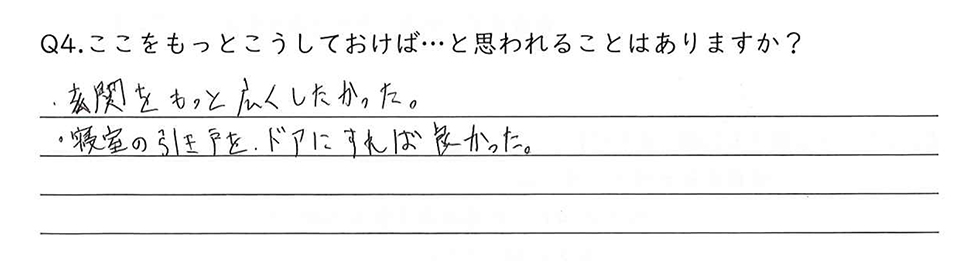 Q4.ここをもっとこうしておけば…と思われることはありますか？
・玄関をもっと広くしたかった。
・寝室の引き戸を、ドアにすれば良かった。